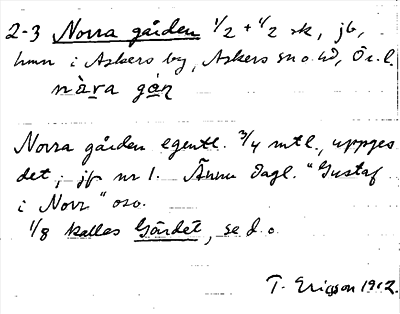 2-3 Norra gården 1/2 + 1/2 sk, jb,
hmn i Askers by, Askers sn o. hd, Ör. l.
nàra gən
Norra gården egentl. 3/4 mtl., uppges
det, jb nr 1. Ännu dagl. "Gustaf
i Norr" osv.
1/8 kallas Gärdet, se d. o.
T. Ericsson 1912.